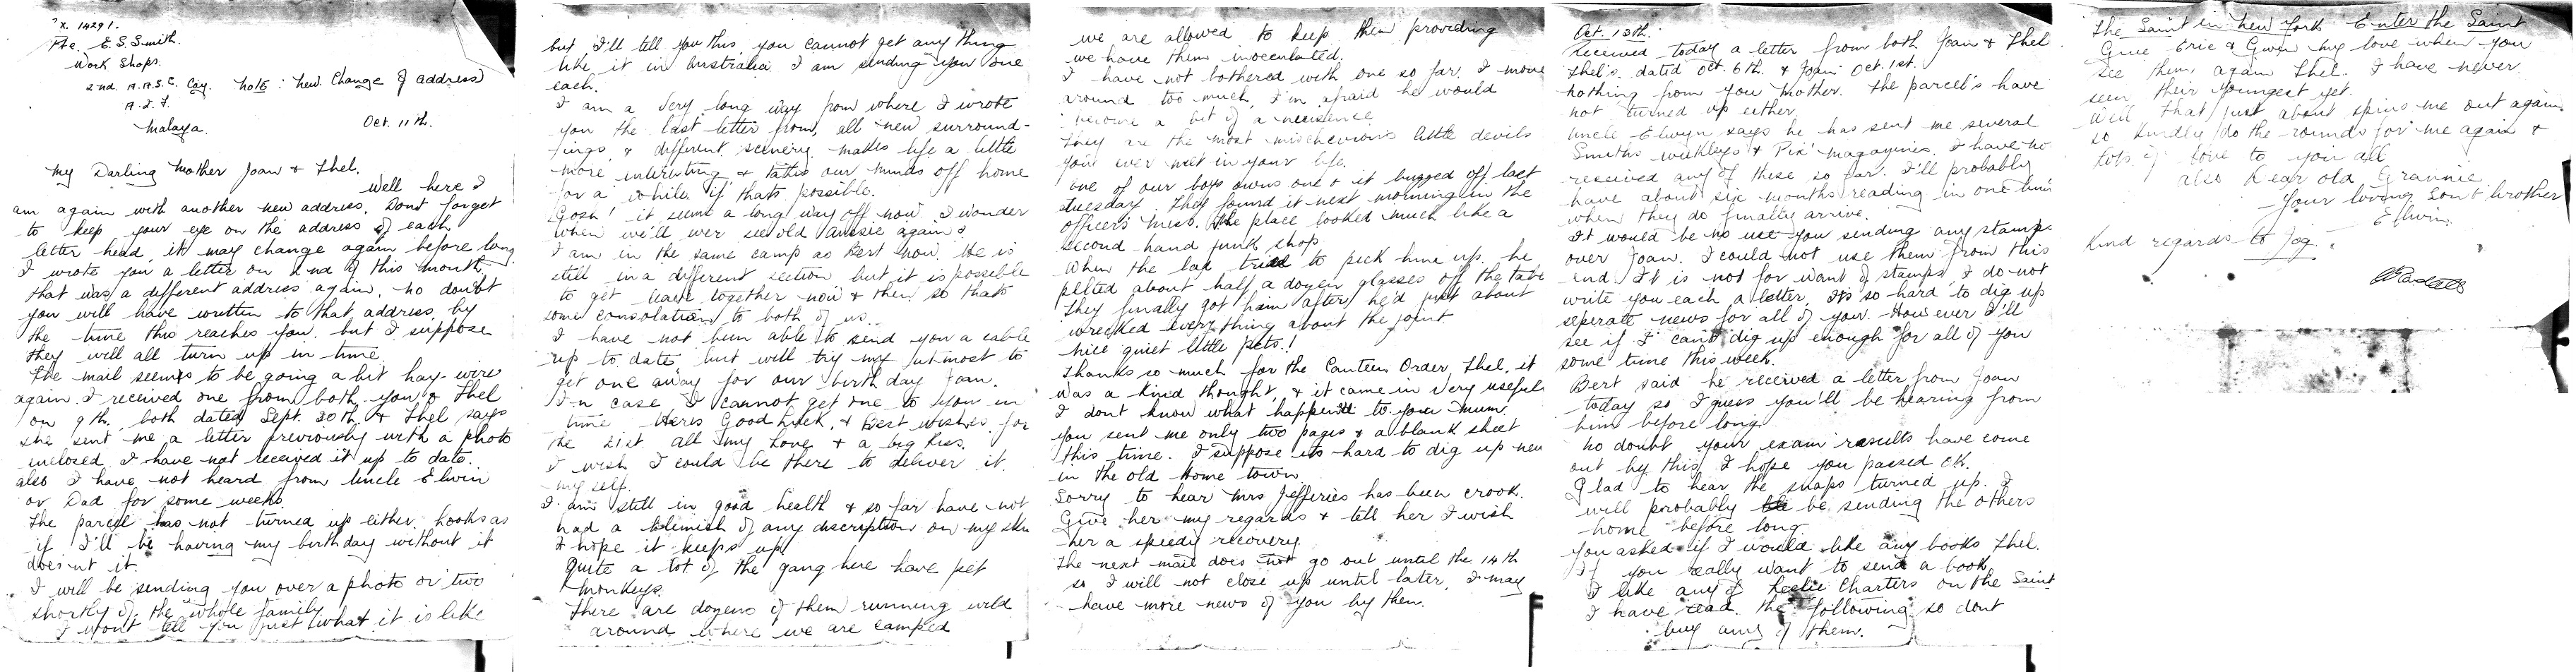 X. 14291.
Pte. E.S. Smith.
Work Shops.
2nd. A.A.S.C. Coy. Note: New Change of address
A.I.F.
Malaya. Oct. 11th.
My Darling Mother Joan & Thel.
Well here I
am again with another new address. Dont forget
to keep your eye on the address of each
letter head, it may change again before long.
I wrote you a letter on 2nd of this month
that was a different address again. No doubt
you will have written to that address, by
the time this reaches you, but I suppose
they will all turn up in time.
The mail seems to be going a bit hay-wire
again. I received one from both you & Thel
on 9th. both dated Sept. 30th. & Thel says
she sent me a letter previously with a photo
inclosed. I have not received it up to date.
also I have not heard from Uncle Elwin
or Dad for some weeks.
The parcel has not turned up either. Looks as
if I'll be having my birthday without it
doesn't it.
I will be sending you over a photo or two
shortly of the whole family.
I wont tell you just what it is like
but I'll tell you this, you cannot get any thing
like it in Australia. I am sending you one
each.
I am a very long way from where I wrote
you the last letter from, all new surround-
ings, & different scenery. makes life a little
more interesting & takes our minds off home
for a while, if thats possible.
Gosh! it seems a long way off now. I wonder
when we'll ever see old Aussie again?
I am in the same camp as Bert now. He is
still in a different section but it is possible
to get leave together now & then so thats
some consolation to both of us.
I have not been able to send you a cable
up to date but will try my utmost to
get one away for our birthday Joan.
In case I cannot get one to you in
time Heres Good Luck, & Best wishes for
the 21st all my Love & a big kiss.
I wish I could be there to deliver it
my self.
I am still in good health & so far have not
had a blemish of any discription on my skin
I hope it keeps up.
Quite a lot of the gang here have pet
monkeys.
There are dozens of them running wild
around where we are camped
we are allowed to keep them providing
we have them inoculated.
I have not bothered with one so far. I move
around too much, I'm afraid he would
become a bit of a neuisence
They are the most mischevious little devils
you ever met in your life.
one of our boys owns one & it buzzed off last
tuesday they found it next morning in the
officer's mess. The place looked much like a
second hand junk shop.
When the lad tried to pick him up. he
pelted about half a dozen glasses off the table
They finally got him after he'd just about
wrecked every thing about the joint.
Nice quiet little pets.!
Thanks so much for the Canteen Order, Thel, it
was a kind thought, & it came in very useful.
I dont know what happened to you Mum
you sent me only two pages & a blank sheet
this time. I suppose its hard to dig up new
in the old Home town.
Sorry to hear Mrs Jefferies has been crook.
Give her my regards & tell her I wish
her a speedy recovery.
The next mail does not go out until the 14th
so I will not close up until later, I may
have more news of you by then.
Oct. 13th.
Received today a letter from both Joan & Thel.
Thel's dated Oct. 6th. & Joan Oct. 1st.
nothing from you Mother. The parcel's have
not turned up either.
Uncle Elwyn says he has sent me several
Smiths weekleys & Pix' magazines. I have no
received any of these so far. I'll probably
have about six months reading in one
when they do finally arrive.
It would be no use you sending any stamps
over Joan. I could not use them from this
end. It is not for want of stamps I do not
write you each a letter, it's so hard to dig up
seperate news for all of you. However I'll
see if I can't dig up enough for all of you
some time this week.
Bert said he received a letter from Joan
today so I guess you'll be hearing from
him before long.
No doubt your exam results have come
out by this, I hope you passed OK.
Glad to hear the snaps turned up. I
will probably be sending the others
home before long.
You asked if I would like any books Thel.
If you really want to send a book
I like any of Leslie Charters on the Saint
I have read the following so dont
buy any of them.
The Saint in New York Enter the Saint
Give Eric & Gwen my love when you
see them again Thel. I have never
seen their youngest yet.
Well that just about spins me out again
so kindly do the rounds for me again &
lots of love to you all
also Dear old Grannie
Your loving Son & brother
Elwin.
Kind regards to Jog.